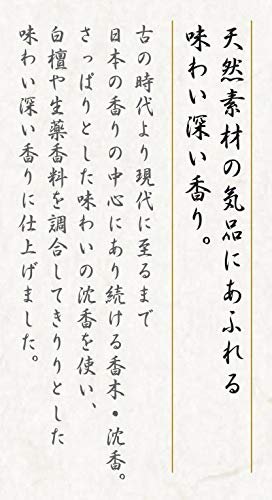 天然素材の気品にあふれる
味わい深い香り。
古の時代より現代に至るまで
日本の香りの中心にあり続ける香木・沈香。
さっぱりとした味わいの沈香を使い、
白檀や生薬香料を調合してきりりとした
味わい深い香りに仕上げました。